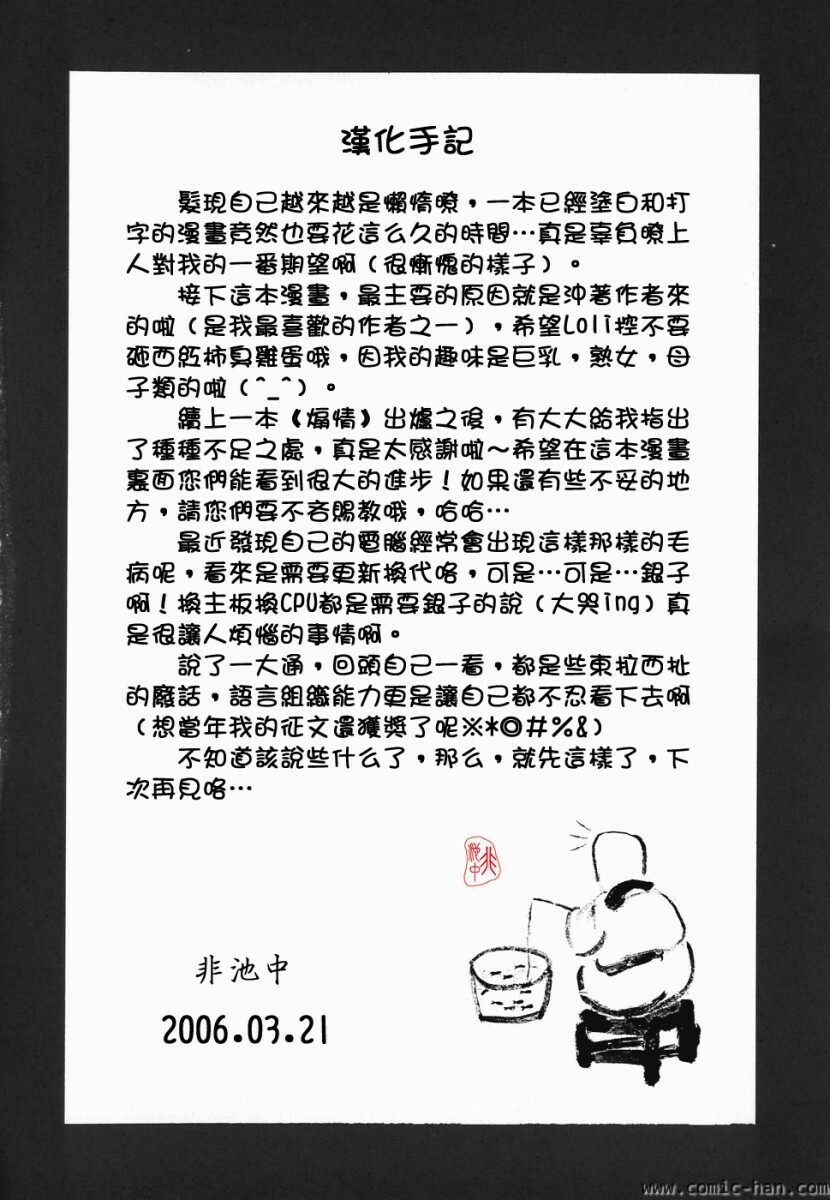 漢化手記
髮現自己越來越是懶惰瞭，一本已經塗白和打
字的漫畫竟然也要花這么久的時間…真是辜負瞭上
人對我的一番期望啊（很慚愧的樣子）。
接下這本漫畫，最主要的原因就是沖著作者來
的啦（是我最喜歡的作者之一），希望Loli控不要
砸西紅柿臭雞蛋哦，因我的趣味是巨乳，熟女，母
子類的啦（^_^）。
續上一本《煽情》出爐之後，有大大給我指出
了種種不足之處，真是太感謝啦～希望在這本漫畫
裏面您們能看到很大的進步！如果還有些不妥的地
方，請您們要不吝賜教哦，哈哈…
最近發現自己的電腦經常會出現這樣那樣的毛
病呢，看來是需要更新換代咯，可是…可是…銀子
啊！換主板換CPU都是需要銀子的說（大哭ing）真
是很讓人煩惱的事情啊。
說了一大通，回頭自己一看，都是些東拉西扯
的廢話，語言組織能力更是讓自己都不忍看下去啊
（想當年我的征文還獲獎了呢※*◎#%&）
不知道該說些什么了，那么，就先這樣了，下
次再見咯…
非池中
非池中
2006.03.21
www.comic-han.com